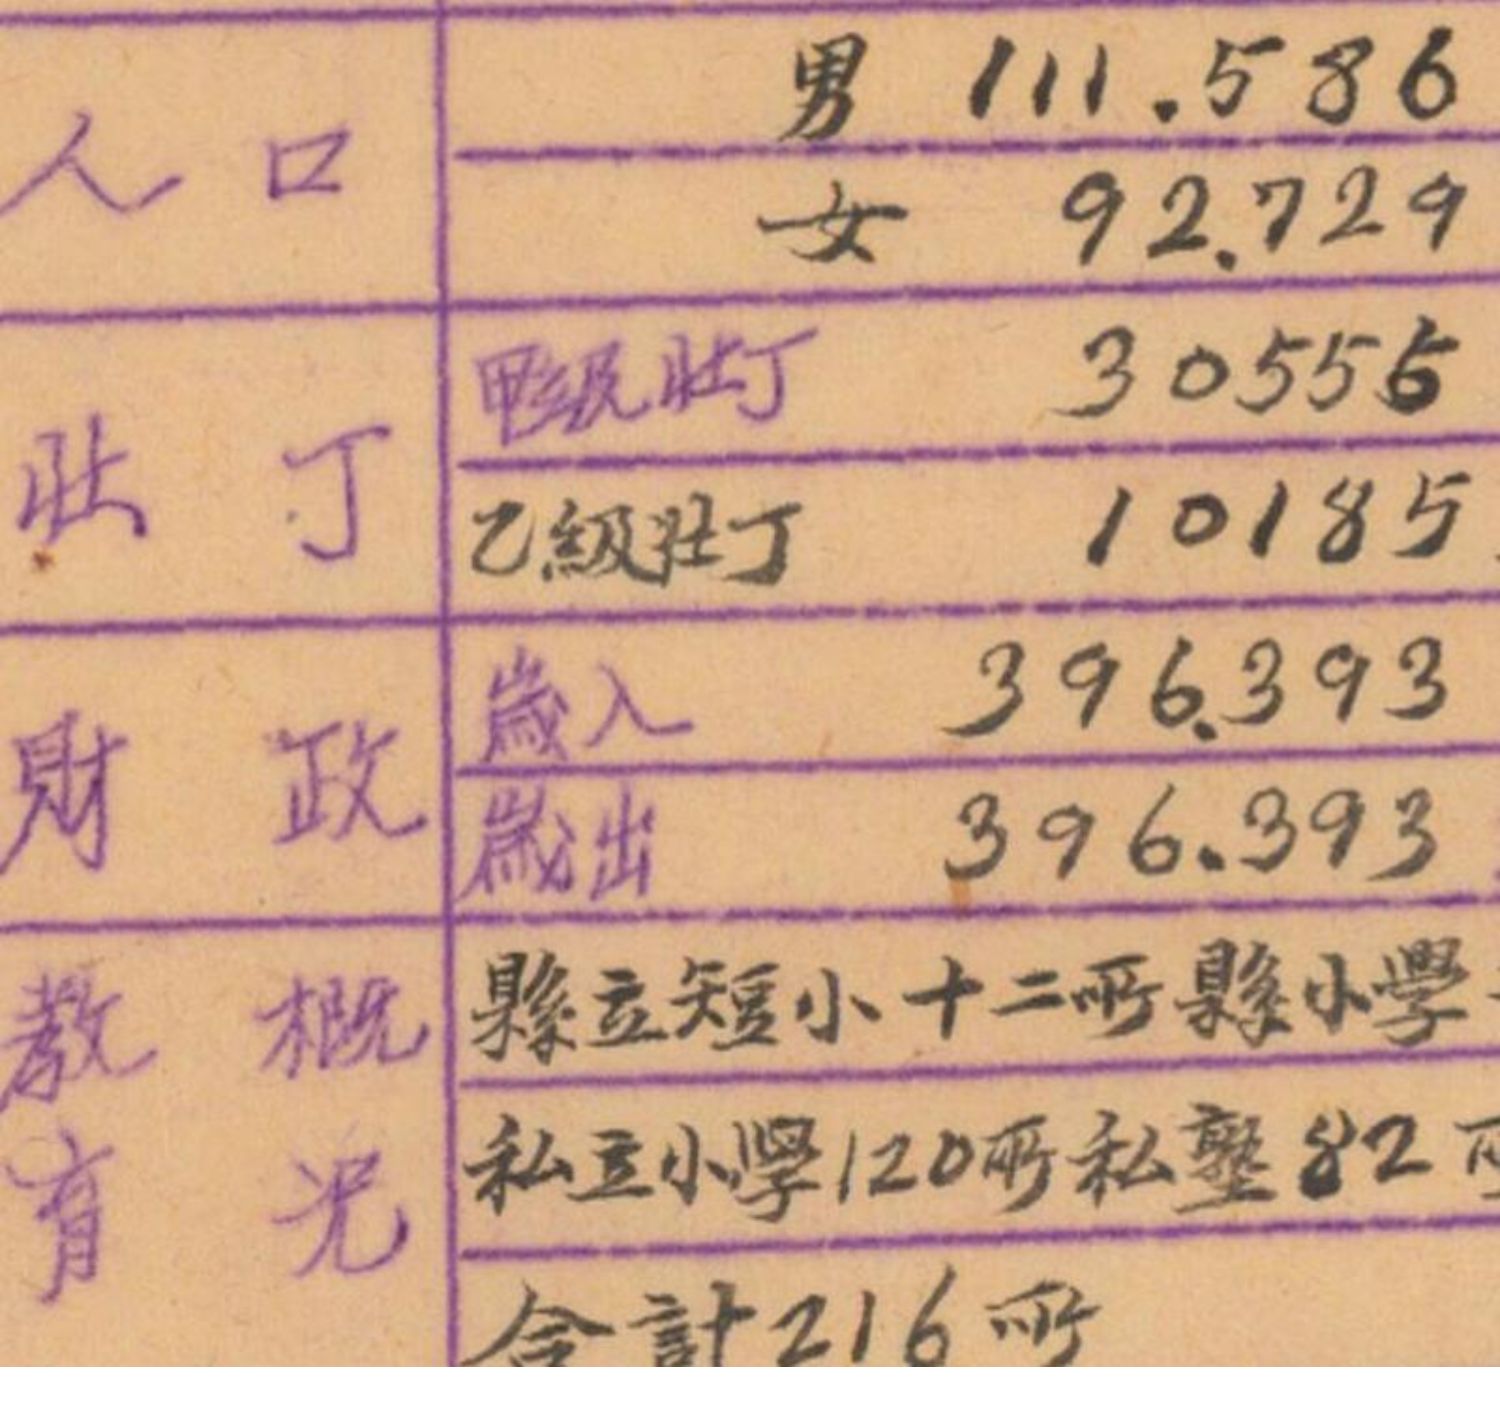 人口
男 111.586
女 92.729
壯丁
甲級壯丁 30556
乙級壯丁 10185
財政
歲入 396.393
歲出 396.393
教育概況
縣立短小十二所縣小學
私立小學120所私塾82所
合計216所